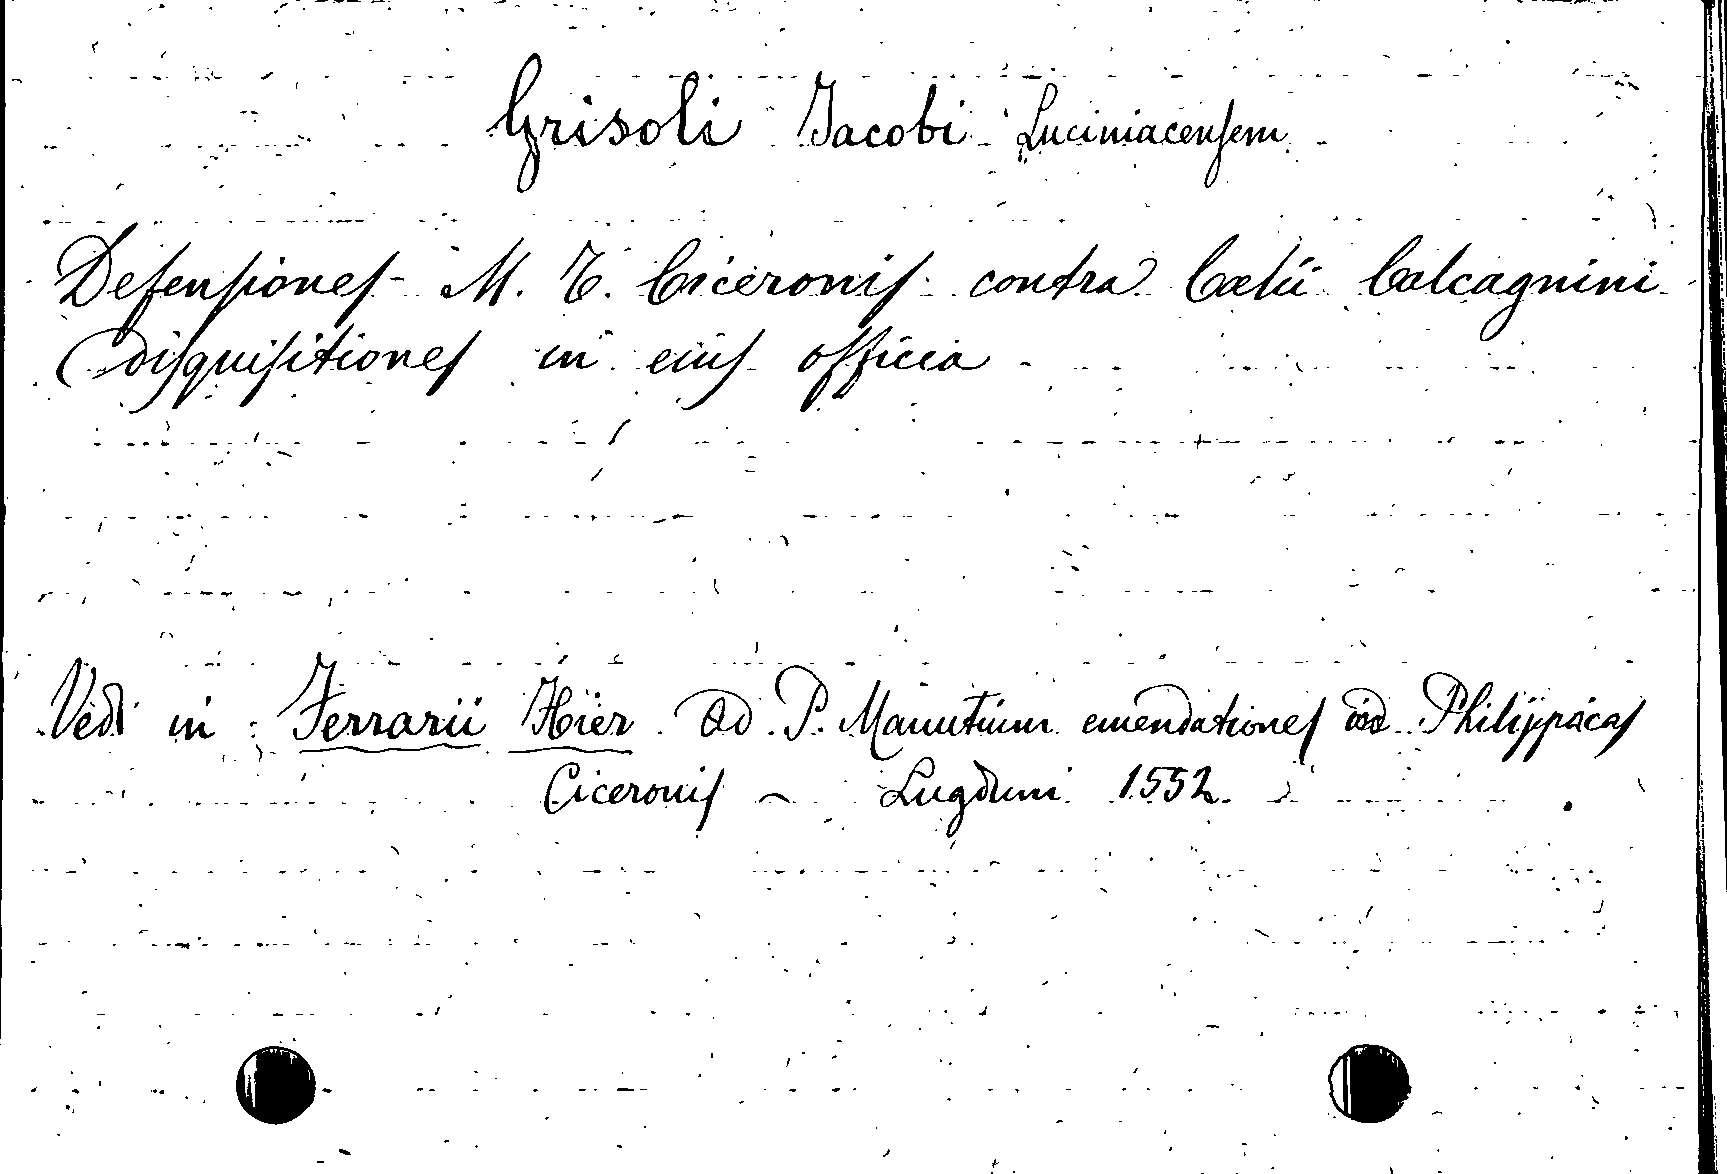 Grisoli Jacobi Luciniacensem
Defensiones M. T. Ciceronis contra Cælii Calcagnini
Disquisitiones in eius officia
Vedi in: Ferrarii Hier Ad P. Manutium emendationes in Philippicas
Ciceronis - Lugduni 1552